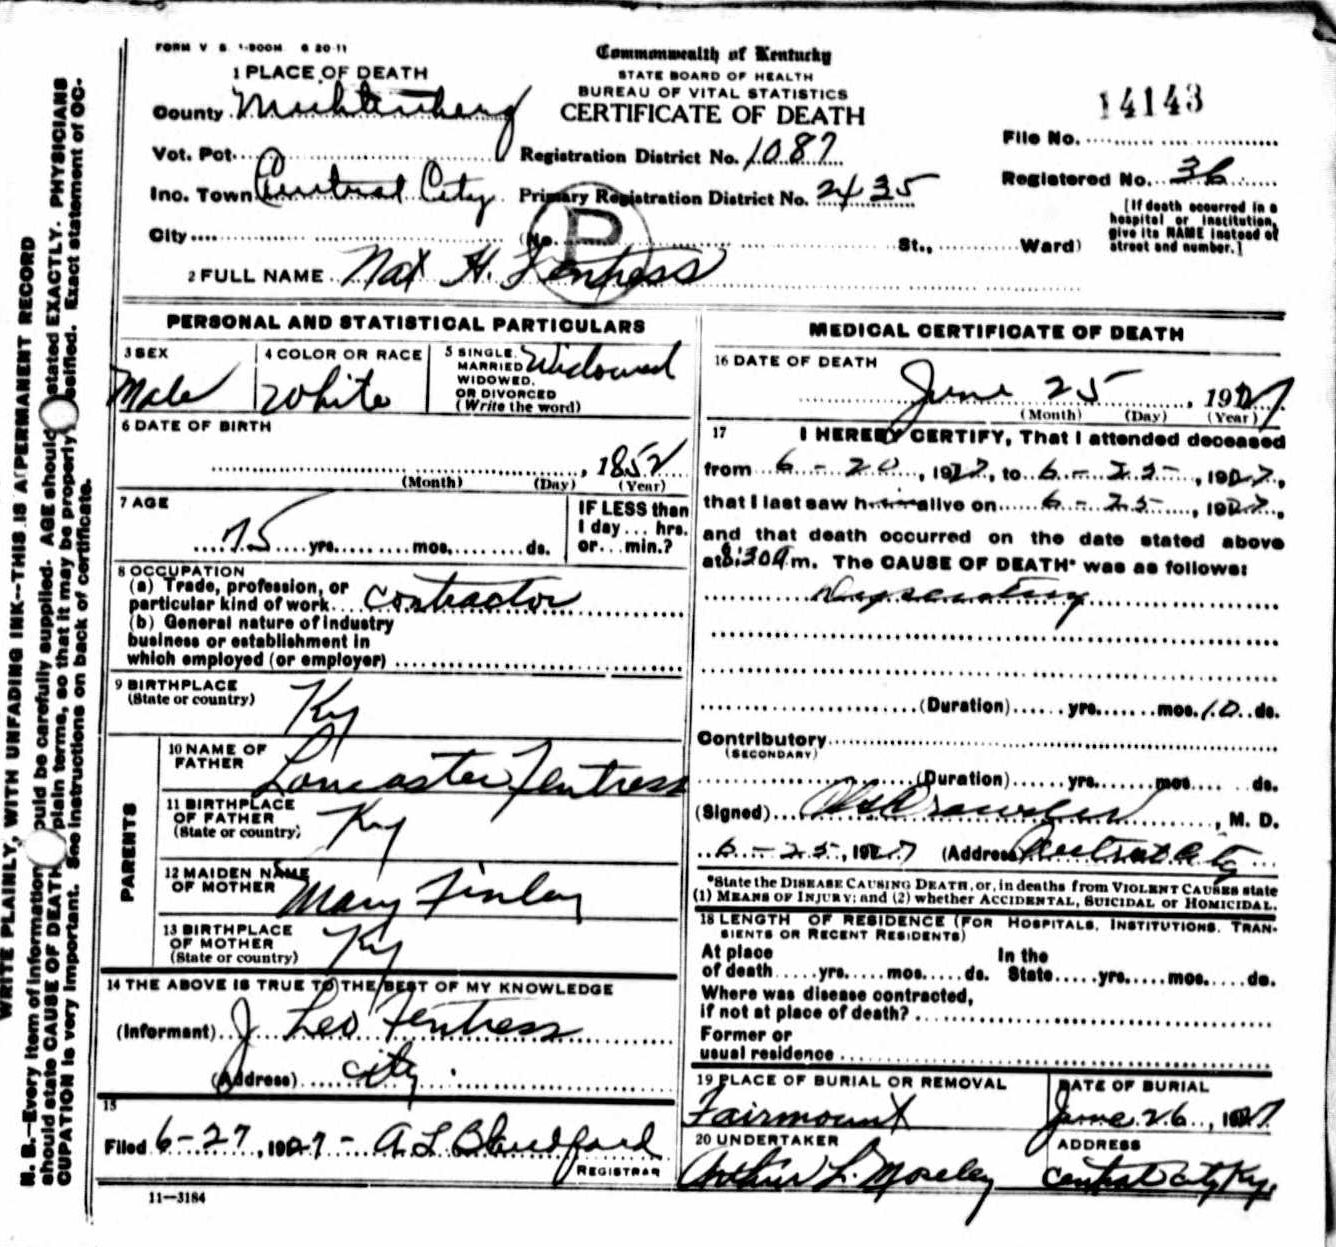 FORM V S 1-500M 6 20 11
Commonwealth of Kentucky
STATE BOARD OF HEALTH
BUREAU OF VITAL STATISTICS
CERTIFICATE OF DEATH
14143
File No.
Registered No. 36
[If death occurred in a
hospital or institution,
give its NAME instead of
street and number.]
1 PLACE OF DEATH
County Muhlenberg
Vot. Pct. Registration District No. 1087
Inc. Town Central City Primary Registration District No. 2435
City (No. St., Ward)
P
2 FULL NAME Nat H. Fentress
PERSONAL AND STATISTICAL PARTICULARS
3 SEX
Male
4 COLOR OR RACE
White
5 SINGLE,
MARRIED
WIDOWED,
OR DIVORCED
(Write the word)
Widowed
6 DATE OF BIRTH
, 1852
(Month) (Day) (Year)
7 AGE
75 yrs. mos. ds.
IF LESS than
1 day ... hrs.
or ... min.?
8 OCCUPATION
(a) Trade, profession, or
particular kind of work contractor
(b) General nature of industry
business or establishment in
which employed (or employer)
9 BIRTHPLACE
(State or country)
Ky
PARENTS
10 NAME OF
FATHER
Lancaster Fentress
11 BIRTHPLACE
OF FATHER
(State or country)
Ky
12 MAIDEN NAME
OF MOTHER
Mary Finley
13 BIRTHPLACE
OF MOTHER
(State or country)
Ky
14 THE ABOVE IS TRUE TO THE BEST OF MY KNOWLEDGE
(Informant) J Leo Fentress
(Address) city
15
Filed 6-27, 1927 - A L Blandford
REGISTRAR
11—3184
MEDICAL CERTIFICATE OF DEATH
16 DATE OF DEATH
June 25, 1927
(Month) (Day) (Year)
17 I HEREBY CERTIFY, That I attended deceased
from 6-20, 1927, to 6-25-, 1927,
that I last saw him alive on 6-25, 1927,
and that death occurred on the date stated above
at 8:30 a m. The CAUSE OF DEATH* was as follows:
Dysentery
(Duration) yrs. mos. 10 ds.
Contributory
(SECONDARY)
(Duration) yrs. mos. ds.
(Signed) , M. D.
6-25, 1927 (Address) Central City
*State the DISEASE CAUSING DEATH, or, in deaths from VIOLENT CAUSES state
(1) MEANS OF INJURY; and (2) whether ACCIDENTAL, SUICIDAL or HOMICIDAL.
18 LENGTH OF RESIDENCE (FOR HOSPITALS, INSTITUTIONS, TRAN-
SIENTS OR RECENT RESIDENTS)
At place In the
of death yrs. mos. ds. State yrs. mos. ds.
Where was disease contracted,
if not at place of death?
Former or
usual residence
19 PLACE OF BURIAL OR REMOVAL
Fairmount
DATE OF BURIAL
June 26, 1927
20 UNDERTAKER
Arthur L. Moseley
ADDRESS
Central City Ky.
N. B.—Every item of information should be carefully supplied. AGE should stated EXACTLY. PHYSICIANS
should state CAUSE OF DEATH plain terms, so that it may be properly classified. Exact statement of OC-
CUPATION is very important. See instructions on back of certificate.
WRITE PLAINLY, WITH UNFADING INK—THIS IS A PERMANENT RECORD